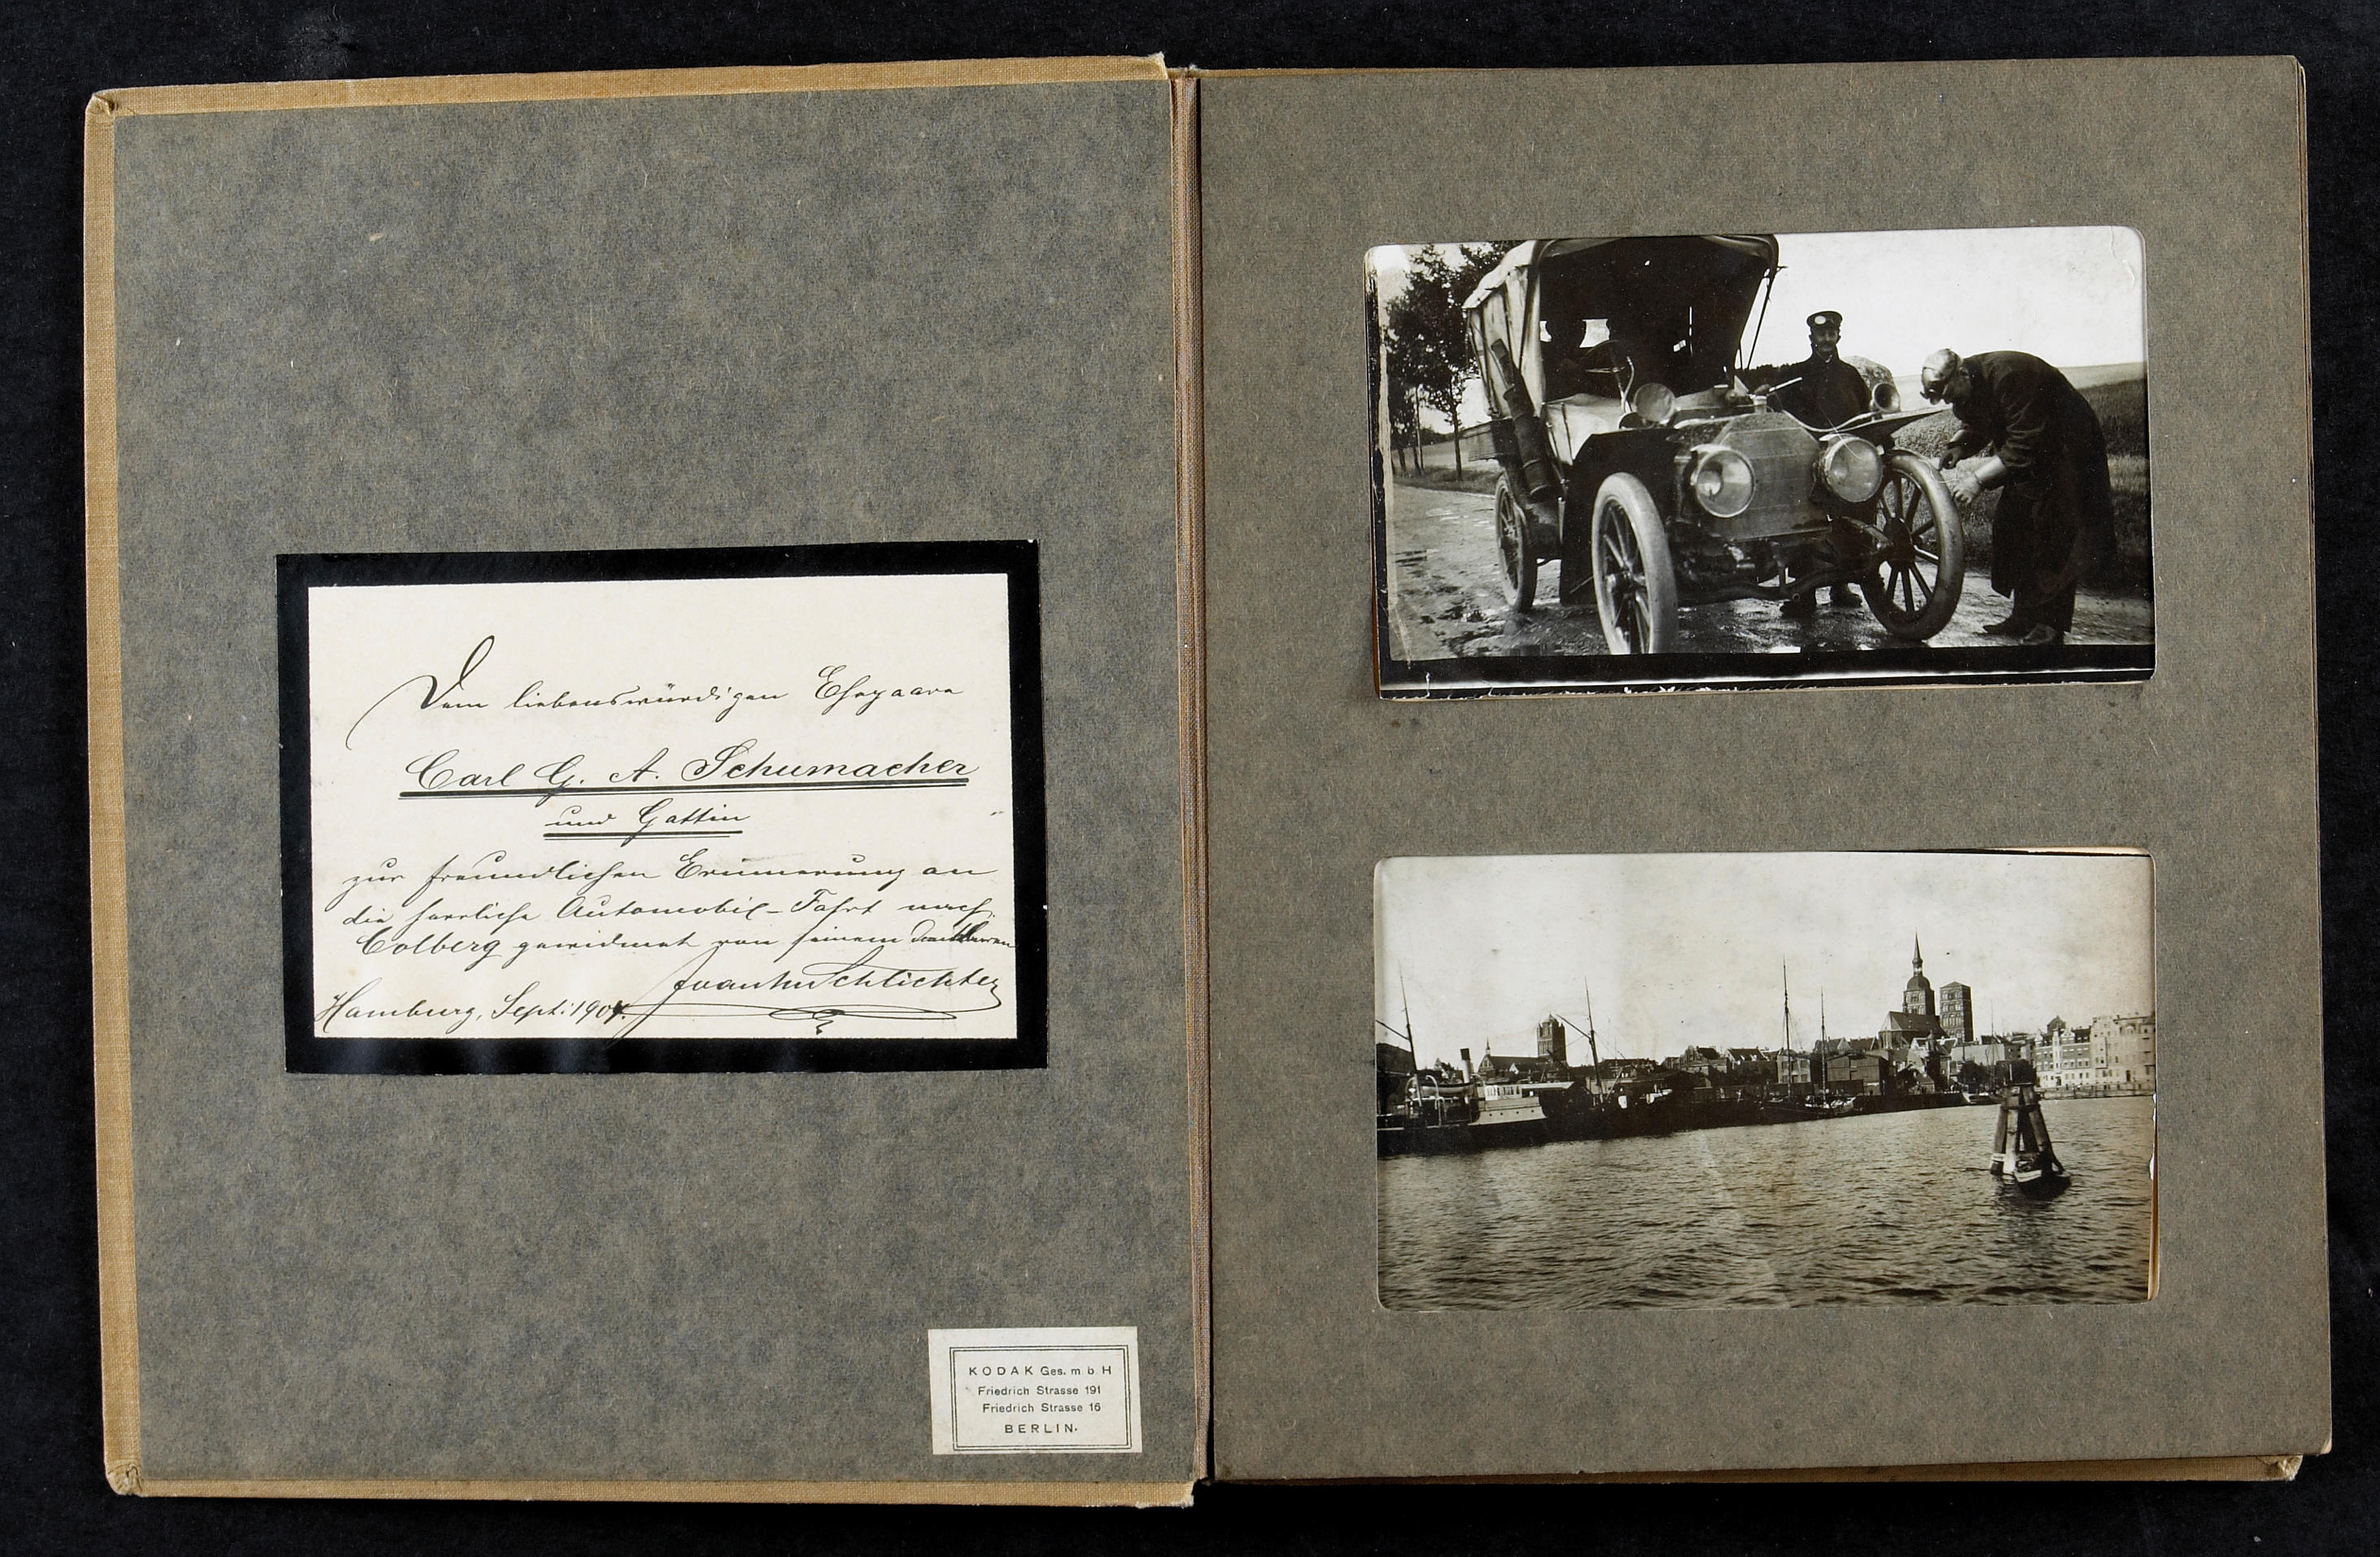 Dem liebenswürdigen Ehepaare
Carl G. A. Schumacher
und Gattin
zur freundlichen Erinnerung an
die herrliche Automobil-Fahrt nach
Colberg gewidmet von seinem dankbaren
Schlichter
Hamburg, Sept: 1907.
KODAK Ges. m b H
Friedrich Strasse 191
Friedrich Strasse 16
BERLIN.